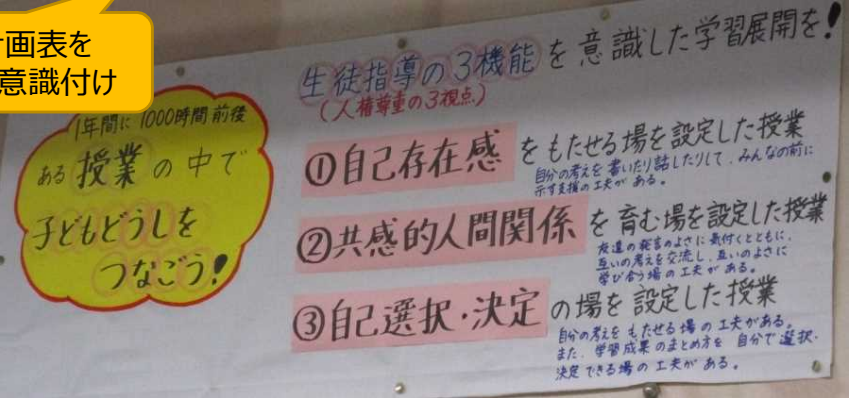 画表を
意識付け
1年間に1000時間前後
ある授業の中で
子どもどうしを
つなごう!
生徒指導の3機能を意識した学習展開を!
(人権尊重の3視点)
①自己存在感をもたせる場を設定した授業
自分の考えを書いたり話したりして、みんなの前に
示す支援の工夫がある。
②共感的人間関係を育む場を設定した授業
友達の発言のよさに気付くとともに、
互いの考えを交流し、互いのよさに
学び合う場の工夫がある。
③自己選択・決定の場を設定した授業
自分の考えをもたせる場の工夫がある。
また、学習成果のまとめ方を自分で選択・
決定できる場の工夫がある。